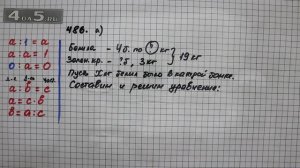 4 5.ru
486. a)
Белила - 4б. по ? кг
Зелен. кр. - ?б, 3 кг } 19 кг
Пусть x кг белил было в каждой банке.
Составим и решим уравнение:
a : 1 = a
a : a = 1
0 : a = 0
a : b = c
a = c · b
b = a : c